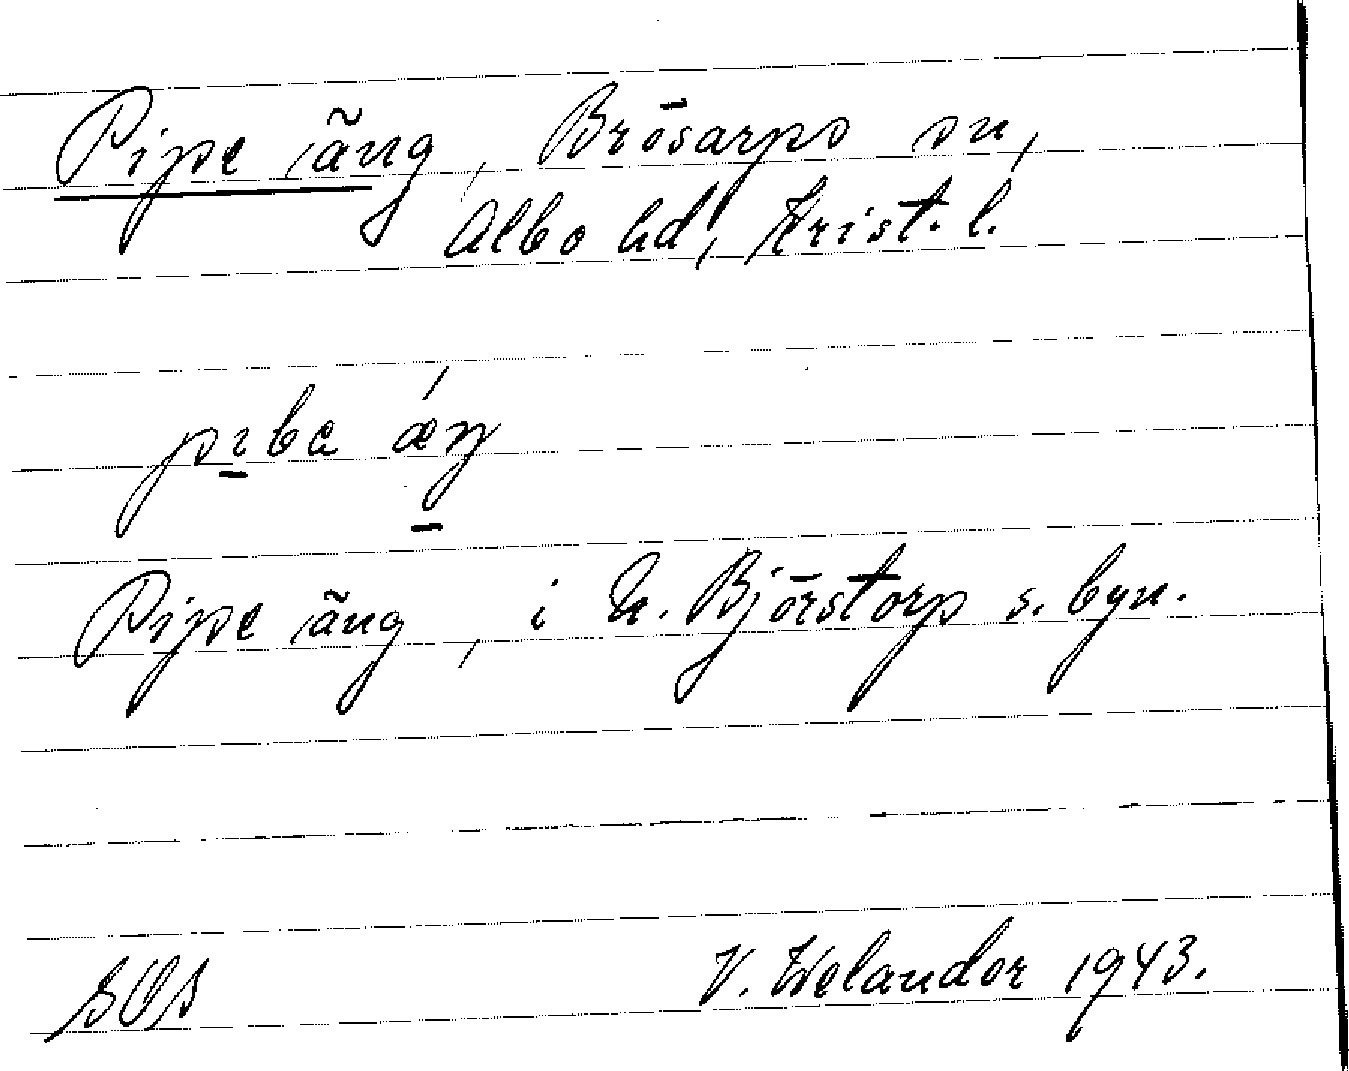 Pipe äng, Brösarps sn,
Albo hd, Krist. l.
pɪba ǽŋ
Pipe äng, i N. Björstorp s. byn.
SOA
V. Welander 1943.